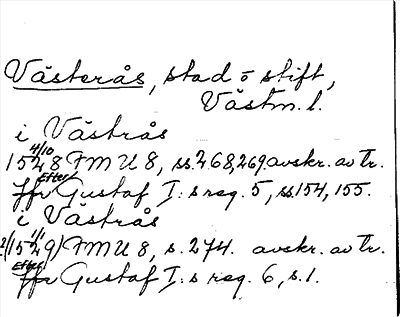 Västerås, stad o stift,
Västm. l.
i Västrås
4/10
1528 FMU 8, ss. 268, 269. avskr. av tr.
Efter
Gustaf I:s reg. 5, ss. 154, 155.
i Västrås
1/1
(1529) FMU 8, s. 274. avskr. av tr.
Efter
Gustaf I:s reg. 6, s. 1.